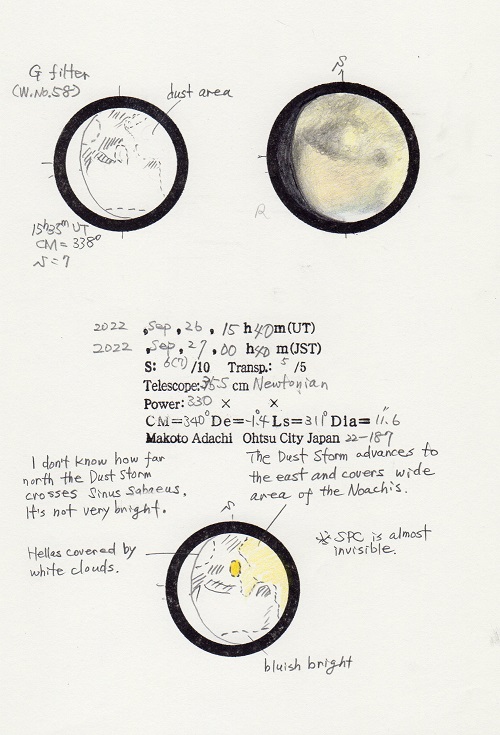 G filter
(W.No.58)
dust area
S
15h33m UT
CM = 338°
S = 7
R
2022 ,Sep , 26 , 15 h 40 m(UT)
2022 ,Sep , 27 , 00 h 40 m (JST)
S: 6(7) /10 Transp.: 5 /5
Telescope: 35.5 cm Newtonian
Power: 330 × ×
CM=340° De=-1.4° Ls=311° Dia= 11.6"
Makoto Adachi Ohtsu City Japan 22-187
I don't know how far
north the Dust Storm
crosses Sinus Sabaeus,
It's not very bright.
The Dust Storm advances to
the east and covers wide
area of the Noachis.
S
※ SPC is almost
invisible.
Hellas covered by
white clouds.
bluish bright